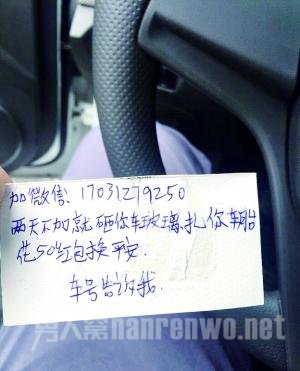 加微信: 17031279250
两天不加就砸你车玻璃、扎你车胎
花50红包换平安.
车号告诉我.
男人窝nanrenwo.net